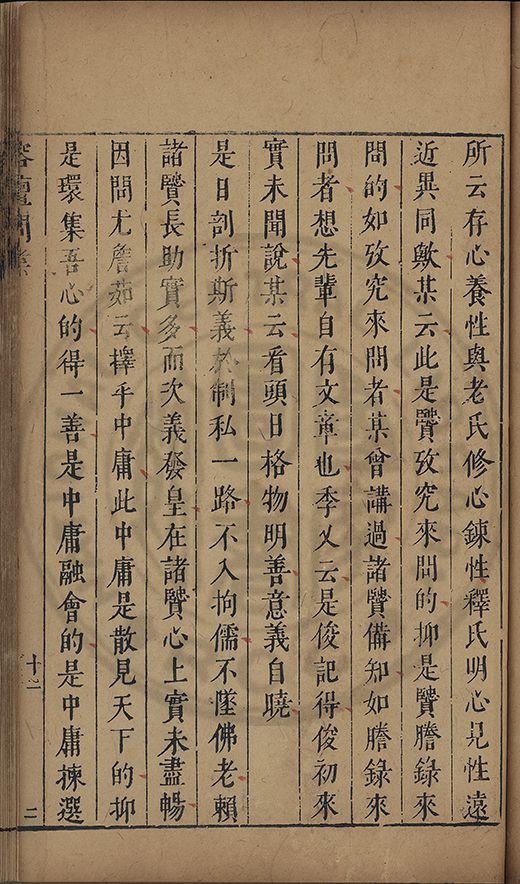 所云存心養性與老氏修心鍊性釋氏明心見性遠
近異同歟某云此是贒攷究來問的抑是贒謄錄來
問的如攷究來問者某曾講過諸贒僃知如謄錄來
問者想先輩自有文章也季乂云是俊記得俊初來
實未聞說某云看頭日格物明善意義自曉
是日剖折斯義於制私一路不入拘儒不墜佛老賴
諸贒長助實多而次義發皇在諸贒心上實未盡暢
因問尤詹茹云擇乎中庸此中庸是散見天下的抑
是環集吾心的得一善是中庸融會的是中庸揀選
榕壇問業
十二
二